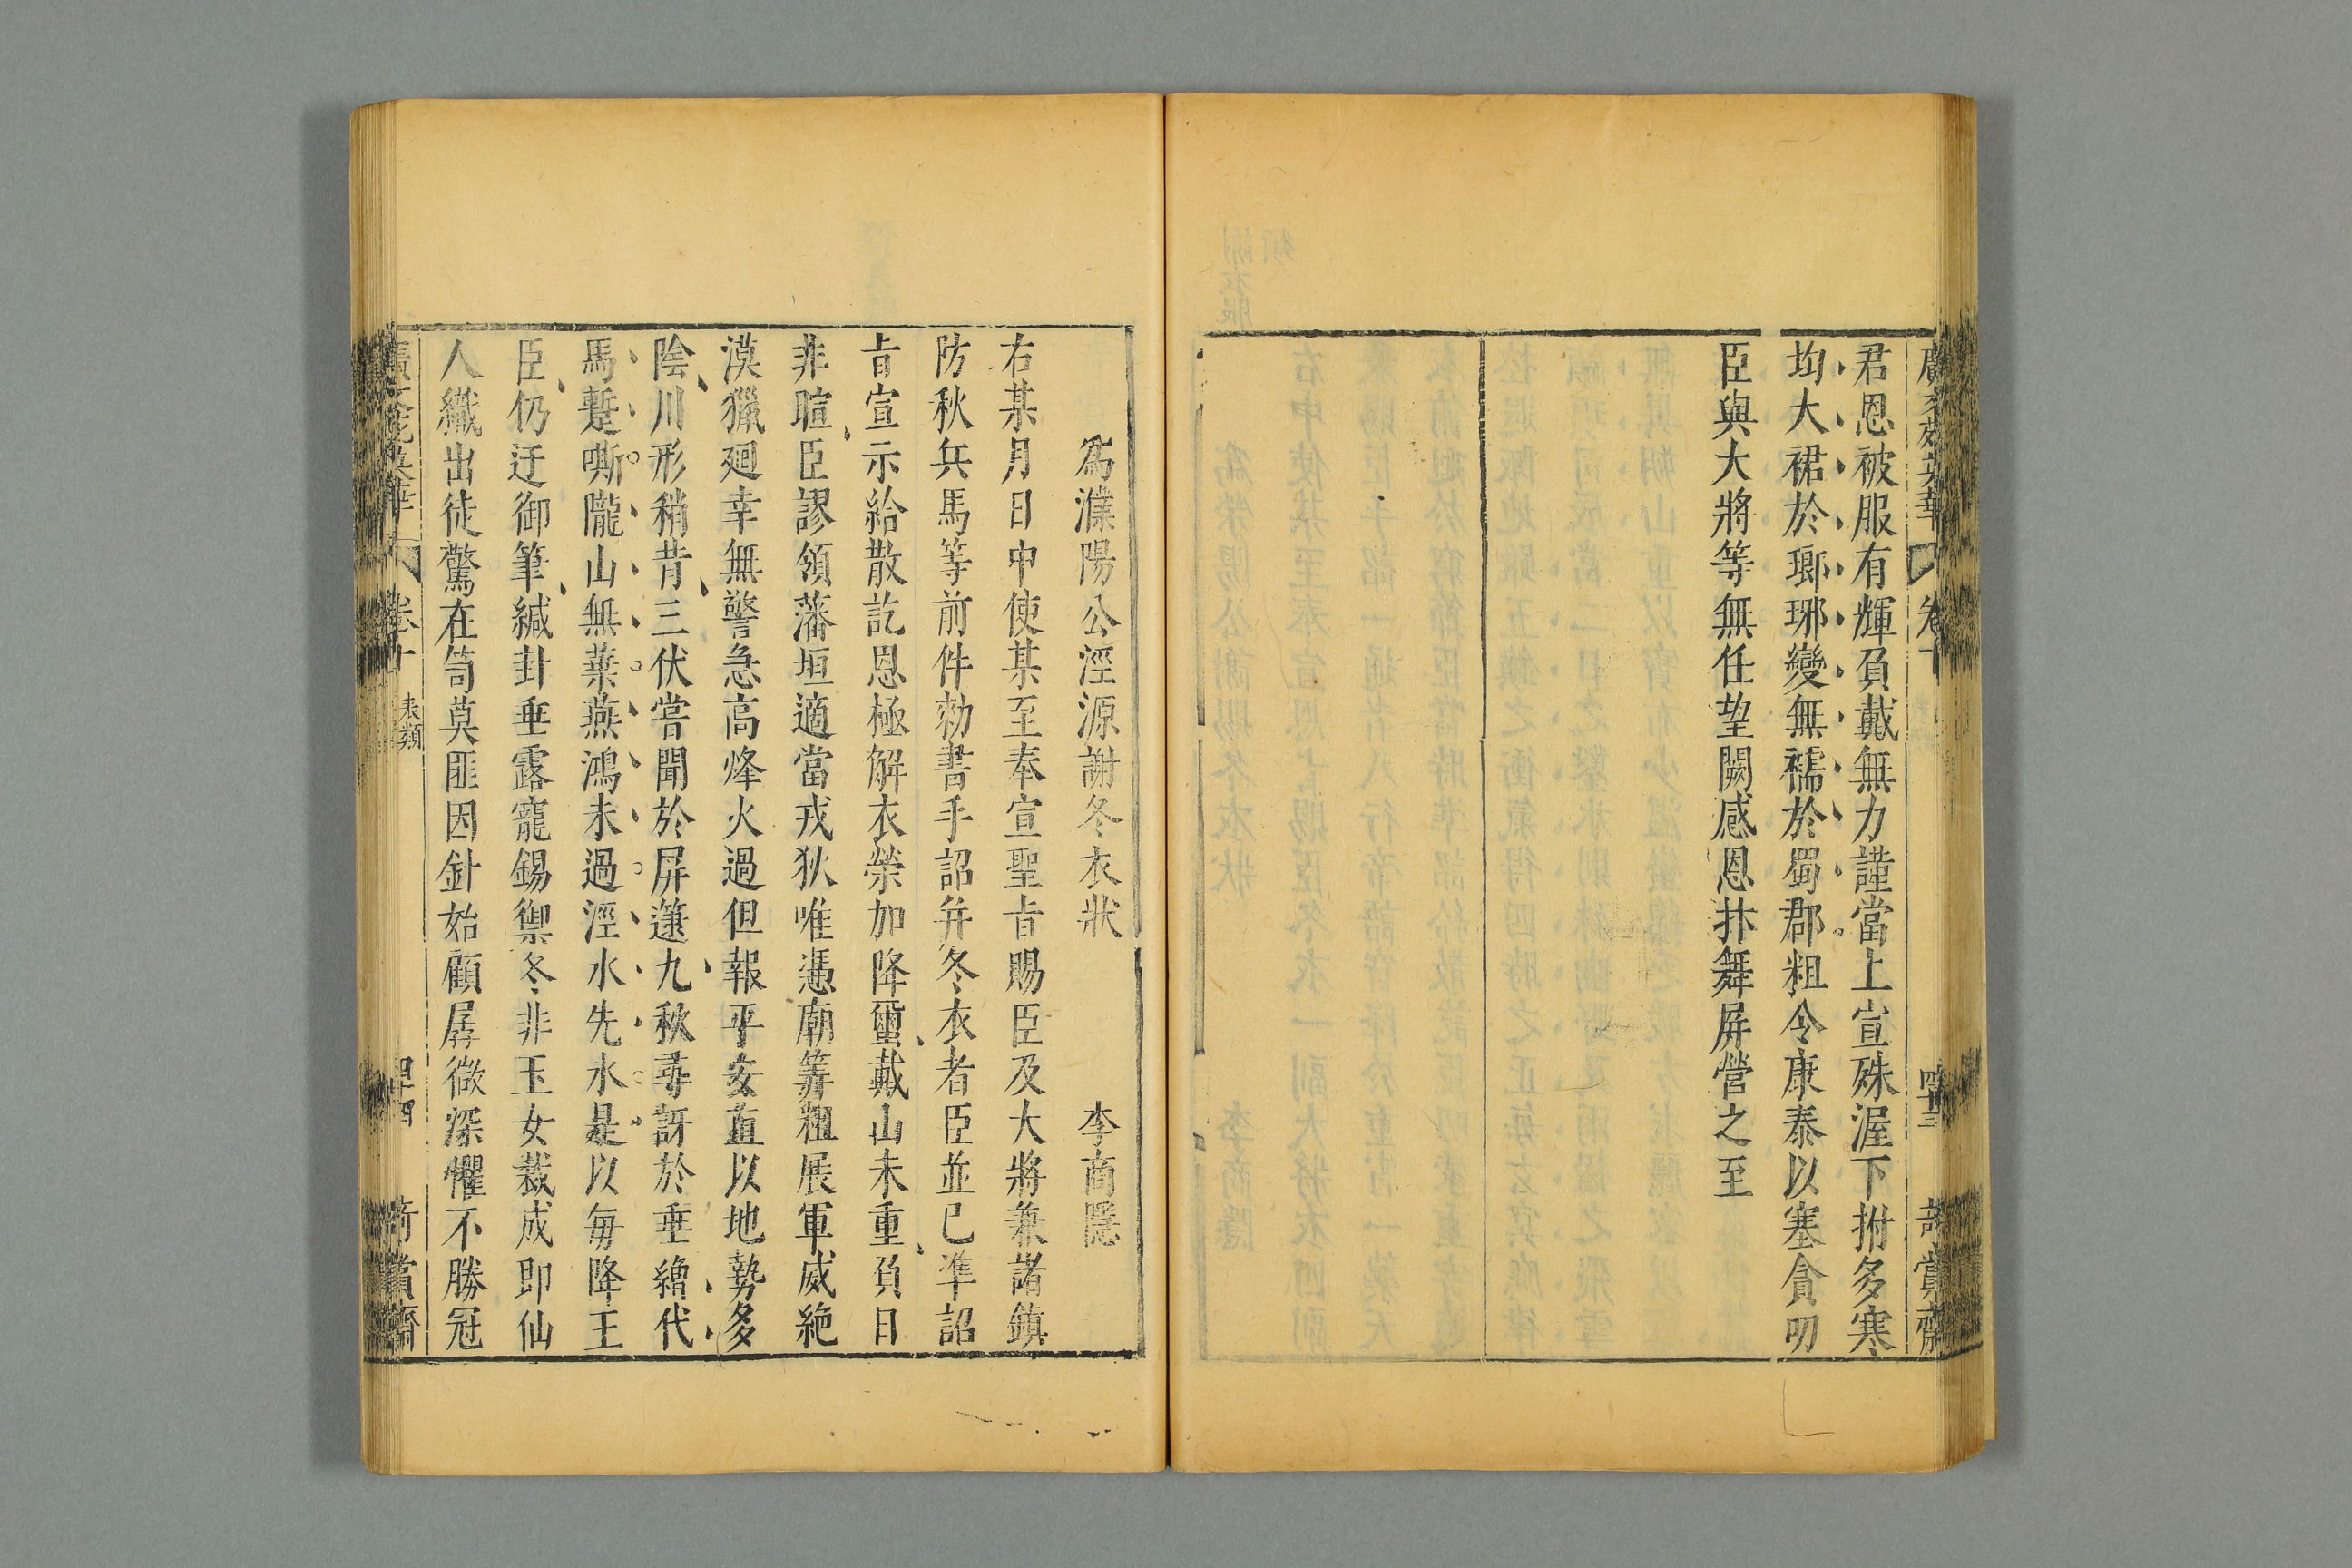 君恩被服有輝負戴無力謹當上宣殊渥下拊多寒
均大裙於瑯琊變無襦於蜀郡粗令康泰以塞貪叨
臣與大將等無任望闕感恩抃舞屏營之至
卷十
四十三
爲濮陽公涇源謝冬衣狀 李商隱
右某月日中使某至奉宣聖旨賜臣及大將兼諸鎮
防秋兵馬等前件勑書手詔并冬衣者臣並已準詔
旨宣示給散訖恩極解衣榮加降璽戴山未重負日
非暄臣謬領藩垣適當戎狄唯憑廟筭粗展軍威絶
漠獵廻幸無警急高烽火過但報平安直以地勢多
陰川形稍昔三伏嘗聞於屏箑九秋尋訝於垂繒代
馬蹔嘶隴山無葉燕鴻未過涇水先氷是以每降王
臣仍迂御筆緘封垂露寵錫禦冬非玉女裁成即仙
人織出徒驚在笥莫匪因針始顧孱微深懼不勝冠
廣文苑英華 卷十 表類
四十四